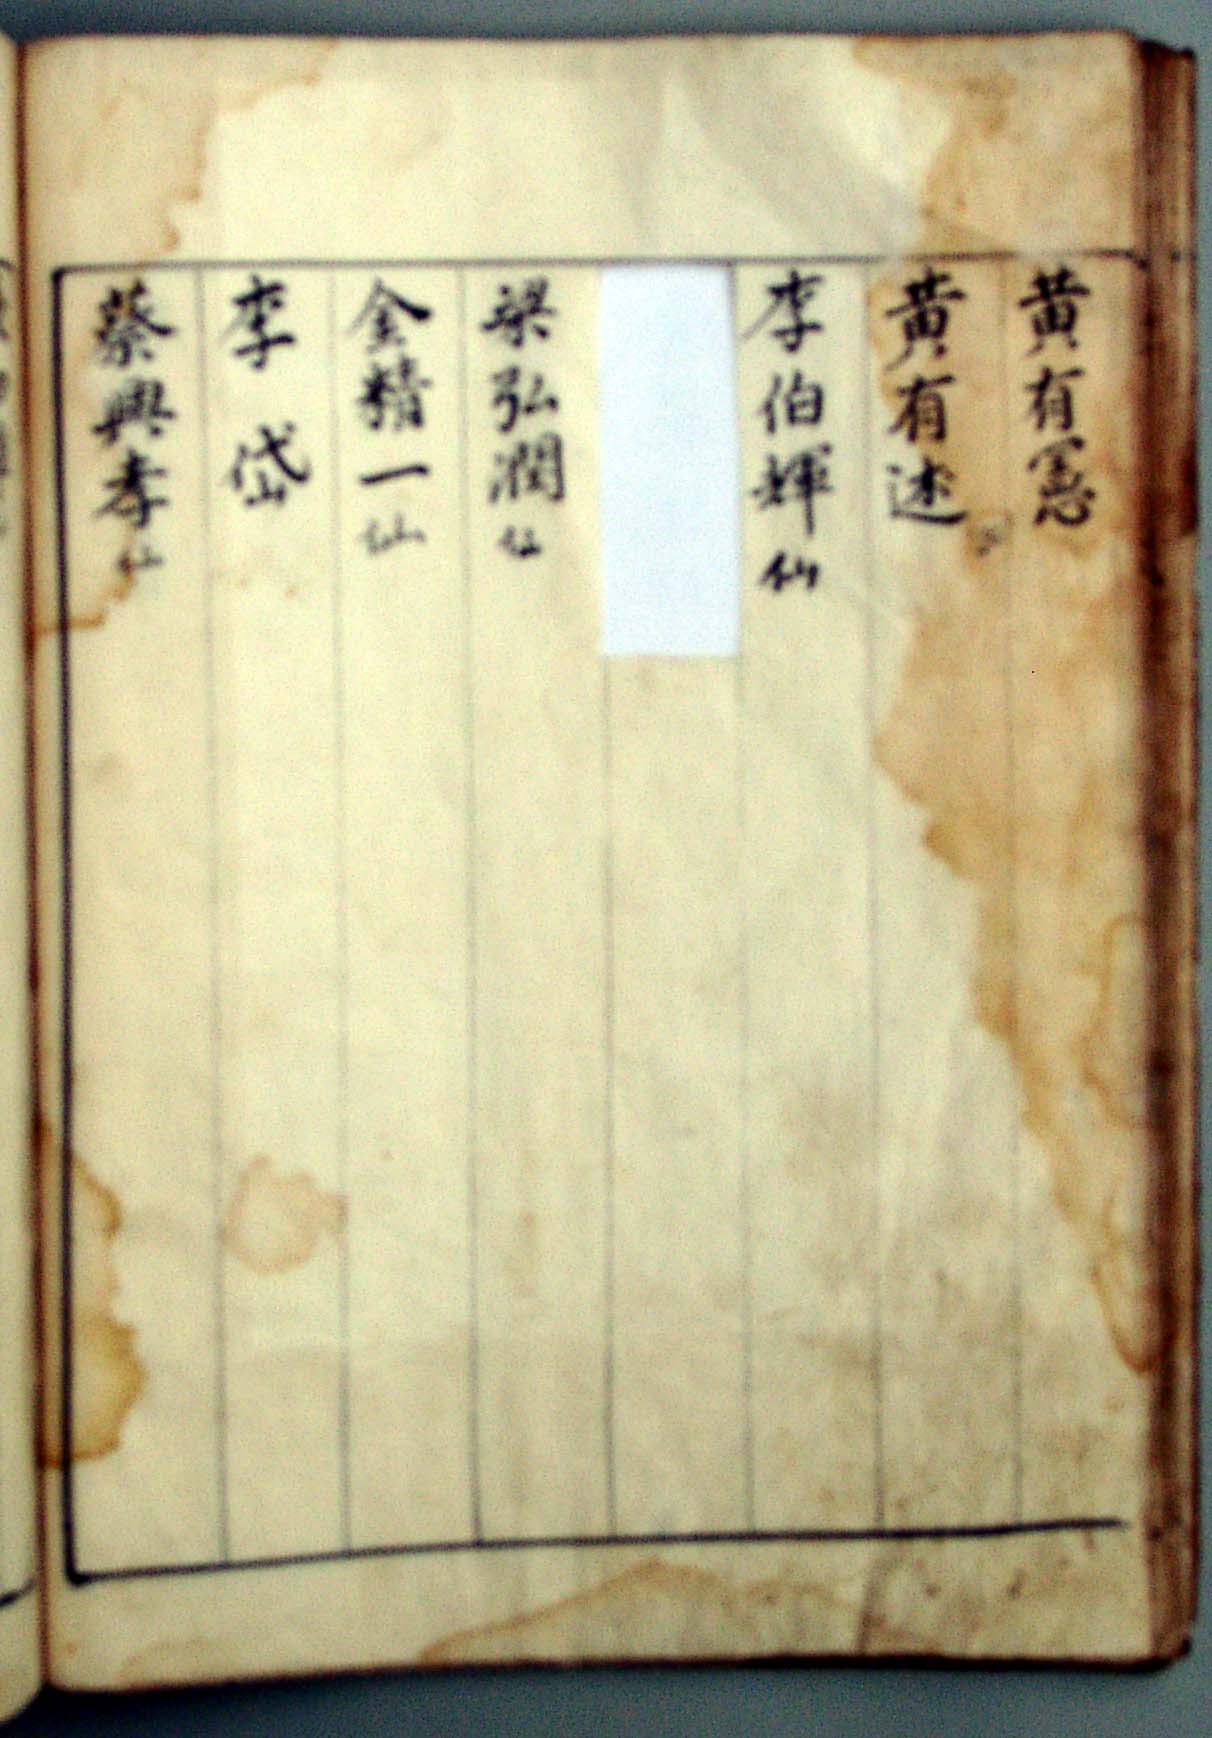 黃有憲
黃有述
李伯輝仙
梁弘潤仙
金精一仙
李岱
蔡興孝仙